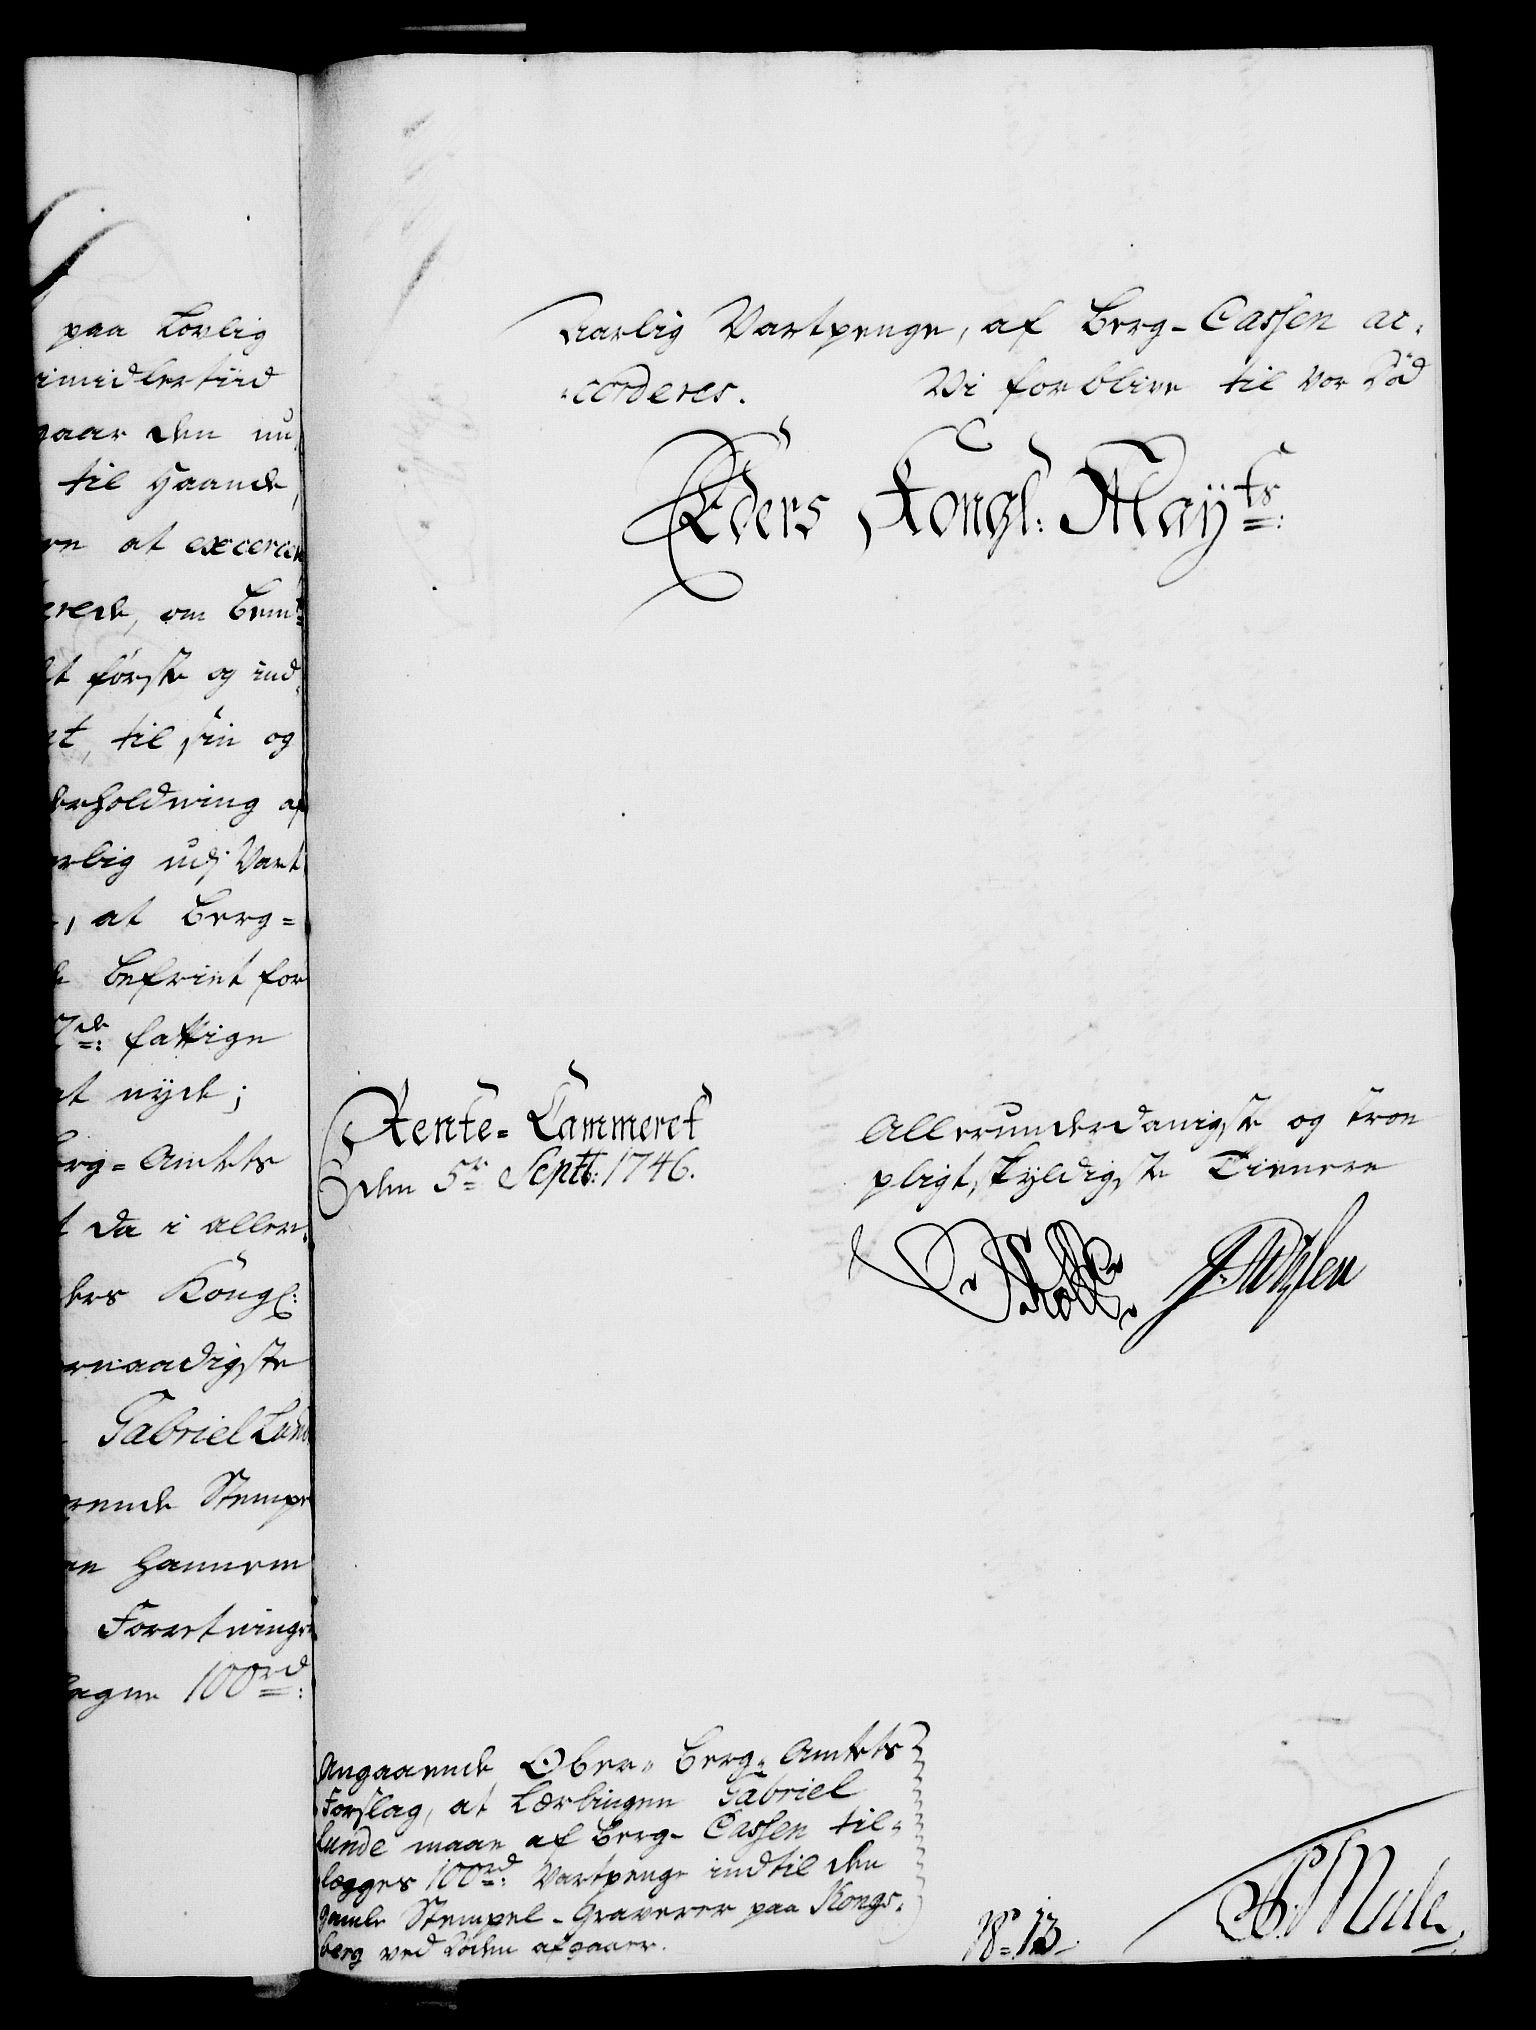 paa Lovlig
imidlertiid
gaar den nu
til Haande,
re at excerce
erede, om bem:te
et første og ind,
et, til sin og
derholdning af
arlig udj Vart
, at Berg=
befriet for
de: fattige
at nyde;
erg=Amtets
t da i aller,
ders Kongl:
ernaadigste
Gabriel Lund
erende Stempe
hannem
Forretninge
100rd:
Aarlig Vartpenge, af Berg-Cassen ac,
,corderes. Vi forblive til vor Död
Eders Kongl: Mayts:
Rente=Cammeret
Den 5te Septb: 1746.
Allerunderdanigste og troe
pligtskyldigste Tienere
Angaaende Ober=Berg=Amtets
Forslag, at Lærlingen Gabriel
Lunde maae af Berg-Cassen til,
lægges 100rd: Vartpenge indtil den
gamle Stempel-Graverer paa Kongs,
berg ved Döden afgaaer.
No 13.
Mule